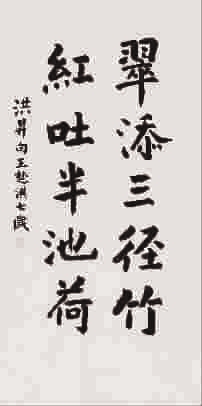 翠添三径竹
紅吐半池荷
洪昇句王楚洪七歲